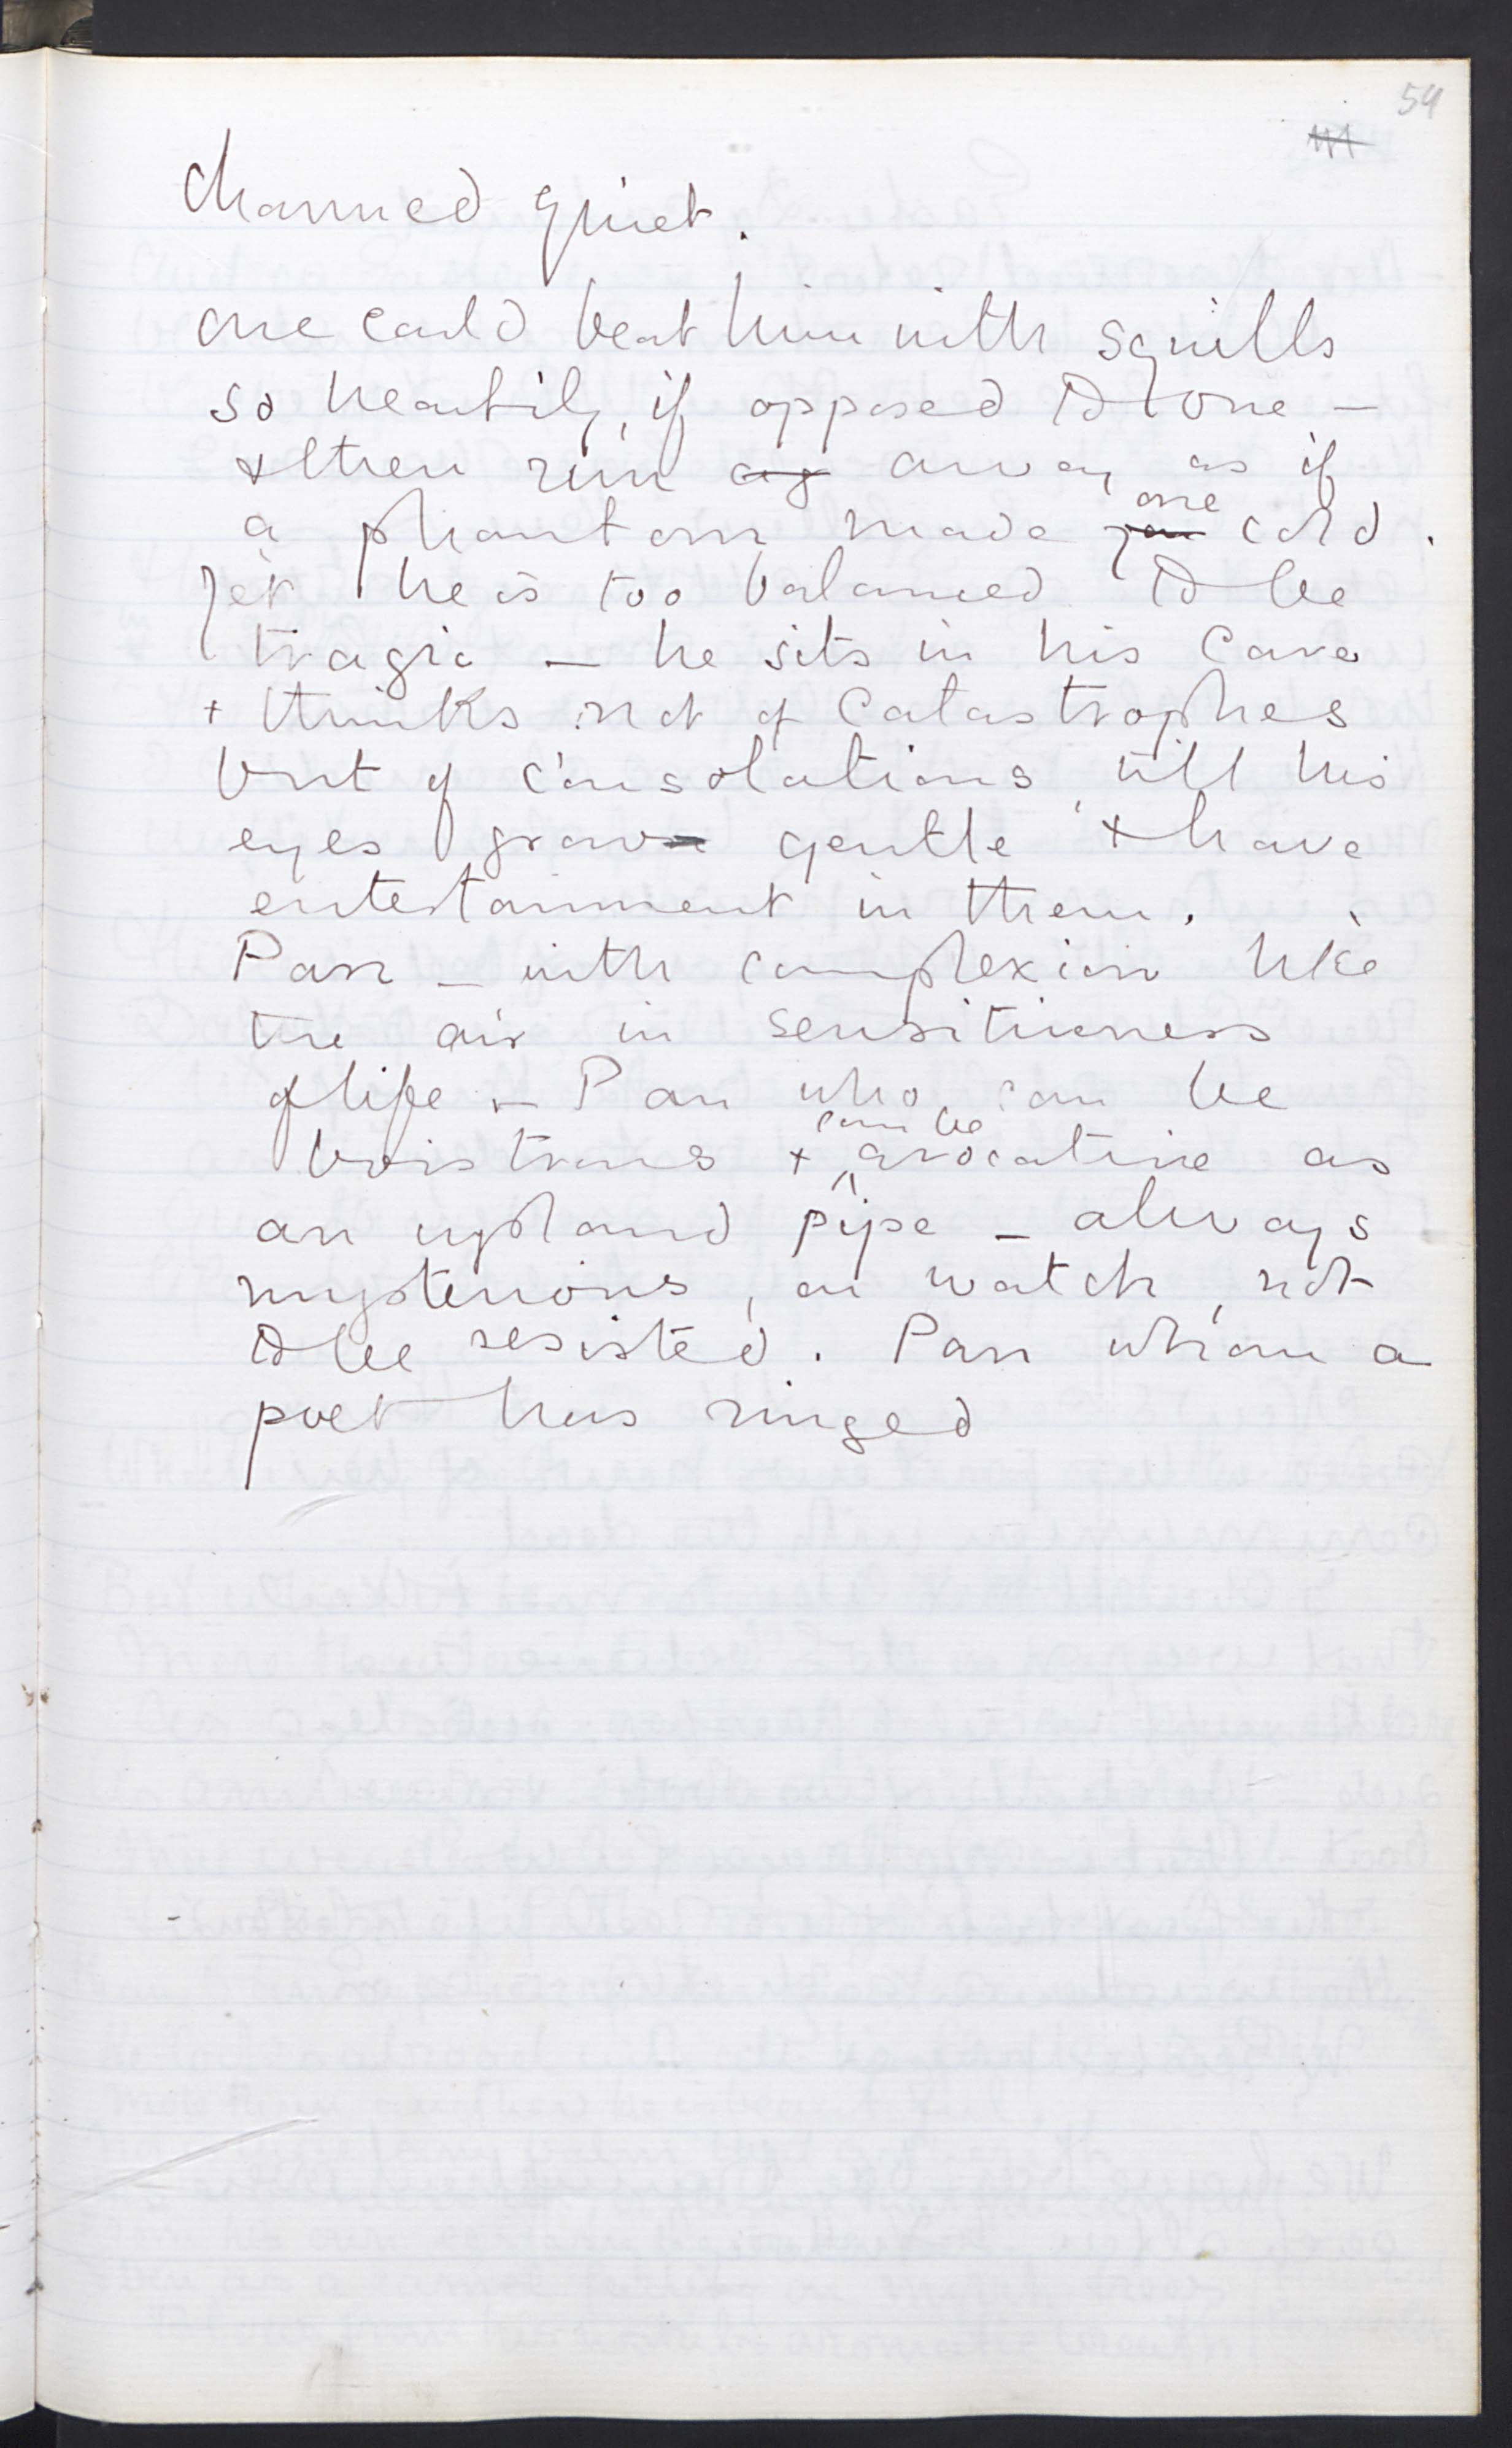 54
charmed quiet.
one could beat him with squills
so heartily, if opposed to one –
& then run ag away as if
one
a phantom made you cold.
Yet he is too balanced to be
tragic – he sits in his cave
+ thinks not of catastrophes
but of consolations, till his
eyes grow gentle & have
entertainment in them.
Pan – with complexion like
the air in sensitiveness
of life – Pan who can be
can be
boistrous + avocative as
an upland pipe – always
mysterious, on watch, not
to be resisted. Pan whom a
poet has ringed